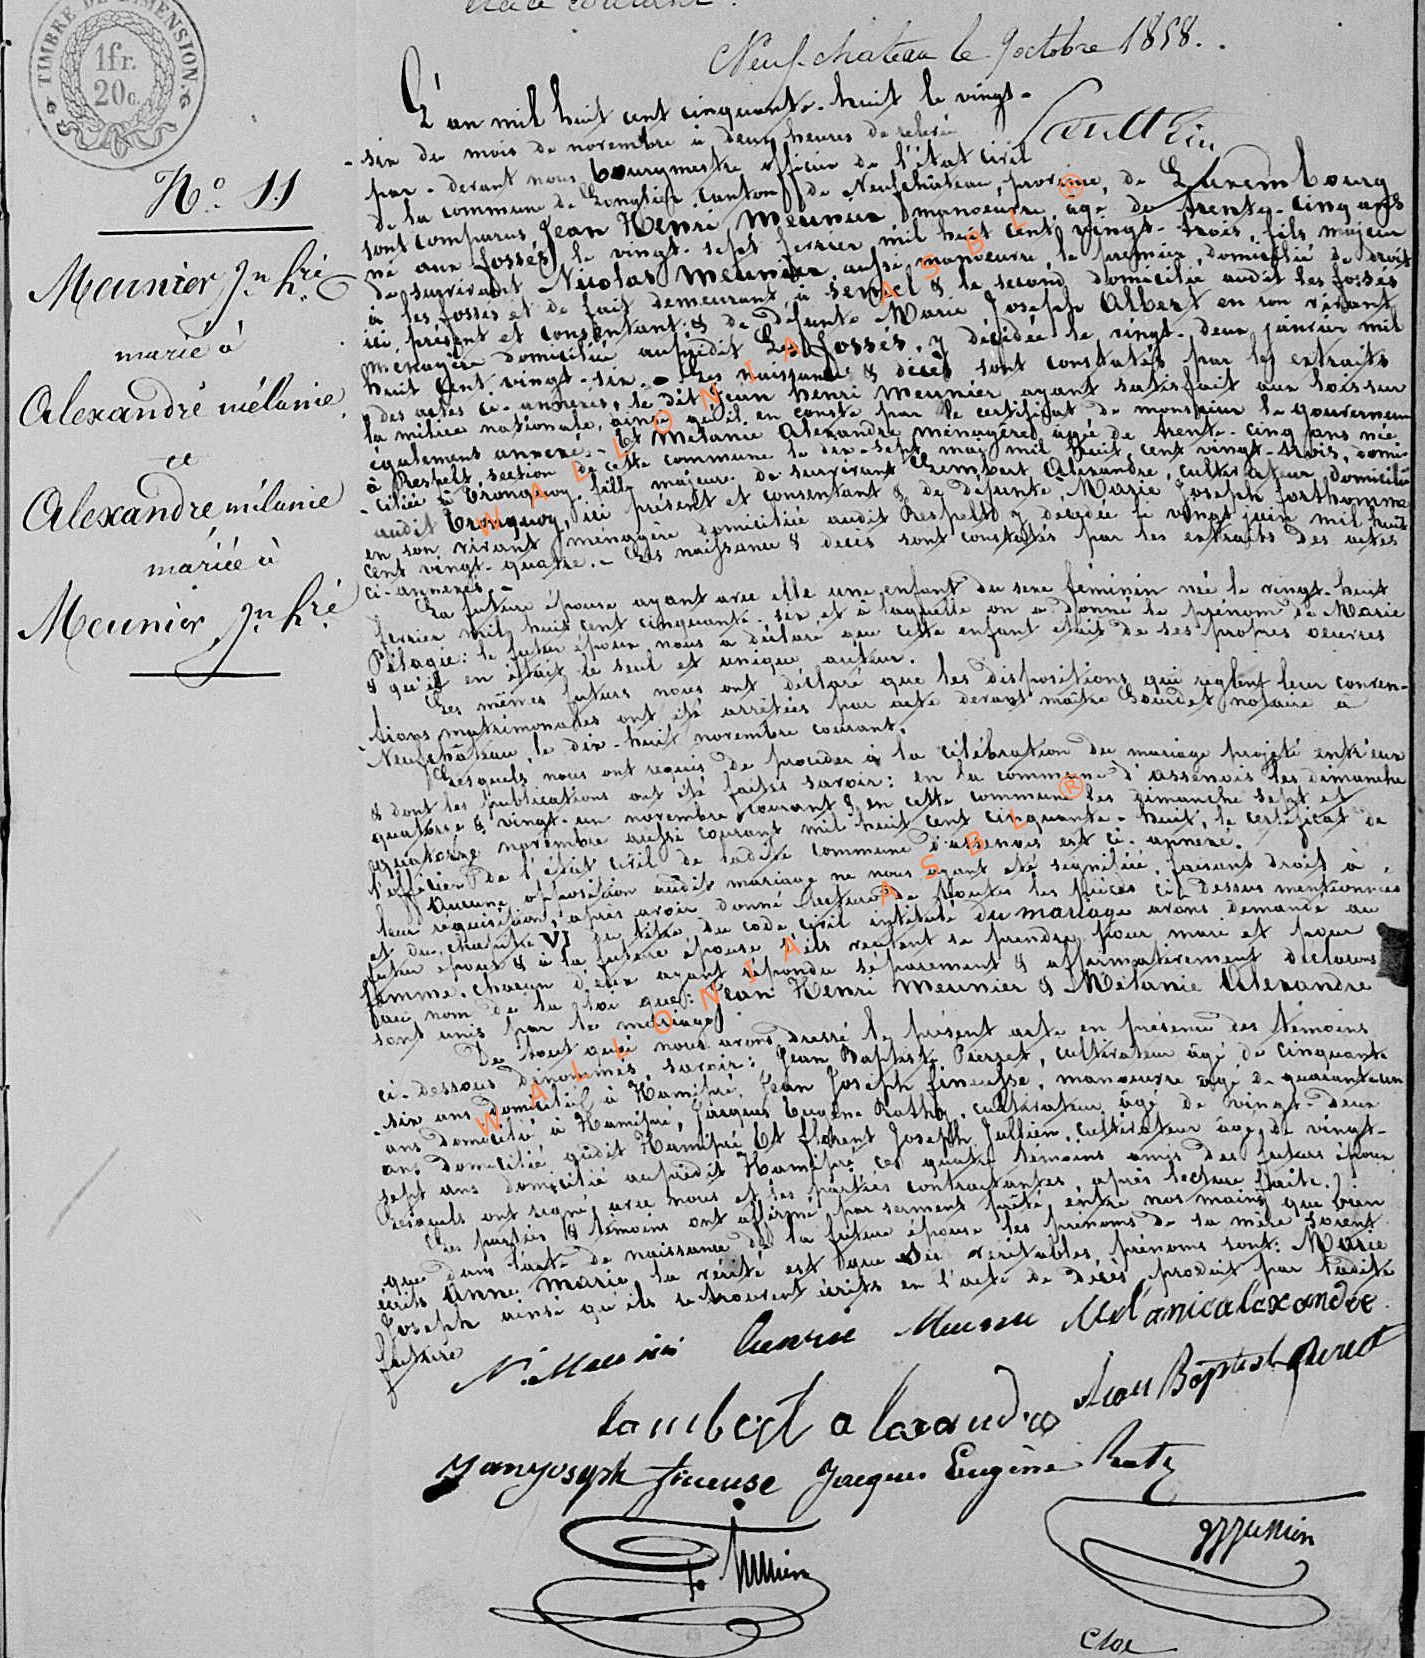 TIMBRE DE DIMENSION.
1fr.
20c.
Neufchateau le 9 octobre 1858.
N.° 11
Meunier Jn hri
marié à
Alexandre mélanie
et
Alexandre mélanie
mariée à
Meunier Jn hri
L'an mil huit cent cinquante-huit le vingt-
six du mois de novembre à deux heures de relevée
par-devant nous bourgmestre officier de l'état civil
de la commune de Longlier canton de Neufchâteau, province de Luxembourg
sont comparus Jean Henri Meunier manoeuvre, âgé de trente-cinq ans
né aux fossés le vingt-sept fevrier mil huit cent vingt-trois, fils majeur
de survivant Nicolas Meunier, aussi manoeuvre, le premier domicilié de droit
à les fossés et de fait demeurant à Semel & le second domicilié audit les fossés
ici présent et consentant & de défunte Marie Joseph Albert en son vivant
ménagère domiciliée audit Les fossés, y décédée le vingt-deux janvier mil
huit cent vingt-six. - Ces naissance & décès sont constatés par les extraits
des actes ci-annexés, le dit Jean henri Meunier ayant satisfait aux lois sur
la milice nationale, ainsi qu'il en conste par le certificat de monsieur le gouverneur
également annexé. - Et Mélanie Alexandre ménagère, âgée de trente-cinq ans née
à Respelt, section de cette commune le dix-sept mai mil huit cent vingt-trois, domi-
ciliée à Tronquoy, fille majeure de survivant Lambert Alexandre, cultivateur domicilié
audit Tronquoy, ici présent et consentant & de défunte Marie Joseph forthomme
en son vivant ménagère domiciliée audit Respelt y décédée le vingt juin mil huit
cent vingt-quatre. - Ces naissance & décès sont constatés par les extraits des actes
ci-annexés -
La future épouse ayant avec elle une enfant du sexe féminin née le vingt-huit
fevrier mil huit cent cinquante-six et à laquelle on a donné le prénom de Marie
Pélagie: le futur époux nous a déclaré que cette enfant était de ses propres oeuvres
& qu'il en était le seul et unique auteur.
Les mêmes futurs nous ont déclaré que les dispositions qui règlent leur conven-
tions matrimoniales ont été arrêtées par acte devant maître Gourdet notaire à
Neufchâteau, le dix-huit novembre courant.
Lesquels nous ont requis de procéder à la célébration du mariage projeté entr'eux
& dont les publications ont été faites savoir: en la commune d'assenois les dimanche
quatorze & vingt-un novembre courant & en cette commune les dimanche sept et
quatorze novembre aussi courant mil huit cent cinquante-huit, le certificat de
l'officier de l'état civil de ladite commune d'assenois est ci-annexé.
Aucune opposition audit mariage ne nous ayant été signifiée, faisant droit à
leur réquisition, après avoir donné lecture de toutes les pièces ci-dessus mentionnées
et du chapitre VI du titre du code civil intitulé du mariage avons demandé au
futur époux & à la future épouse s'ils veulent se prendre pour mari et pour
femme. Chacun d'eux ayant répondu séparément & affirmativement déclarons
au nom de la loi que: Jean Henri Meunier & Mélanie Alexandre
sont unis par le mariage.
De tout quoi nous avons dressé le présent acte en présence des témoins
ci-dessous dénommés, savoir: Jean Baptiste Pierret, cultivateur âgé de cinquante
six ans domicilié à Hamipré, Jean Joseph fineuse, manoeuvre âgé de quarante un
ans domicilié à Hamipré, Jacques Eugène Rathy, cultivateur âgé de vingt-deux
ans domicilié audit Hamipré Et florent Joseph Jullien, cultivateur âgé de vingt-
sept ans domicilié aupredit Hamipré ces quatre témoins amis des futurs époux
lesquels ont signé avec nous et les parties contractantes, après lecture faite.
Les parties & témoins ont affirmé par serment prêté entre nos mains que bien
que dans l'acte de naissance de la future épouse les prénoms de sa mère soient
écrits Anne Marie la vérité est que ses véritables prénoms sont: Marie
Joseph ainsi qu'ils se trouvent écrits en l'acte de décès produit par ladite
future
N. Meunier henrie Meunie Mélanie alexandre
Lambert alexandre Jean Baptiste Pierret
Janjoseph fineuse Jacques Eugène Raty
WALLONIA ASBL ®
WALLONIA ASBL ®